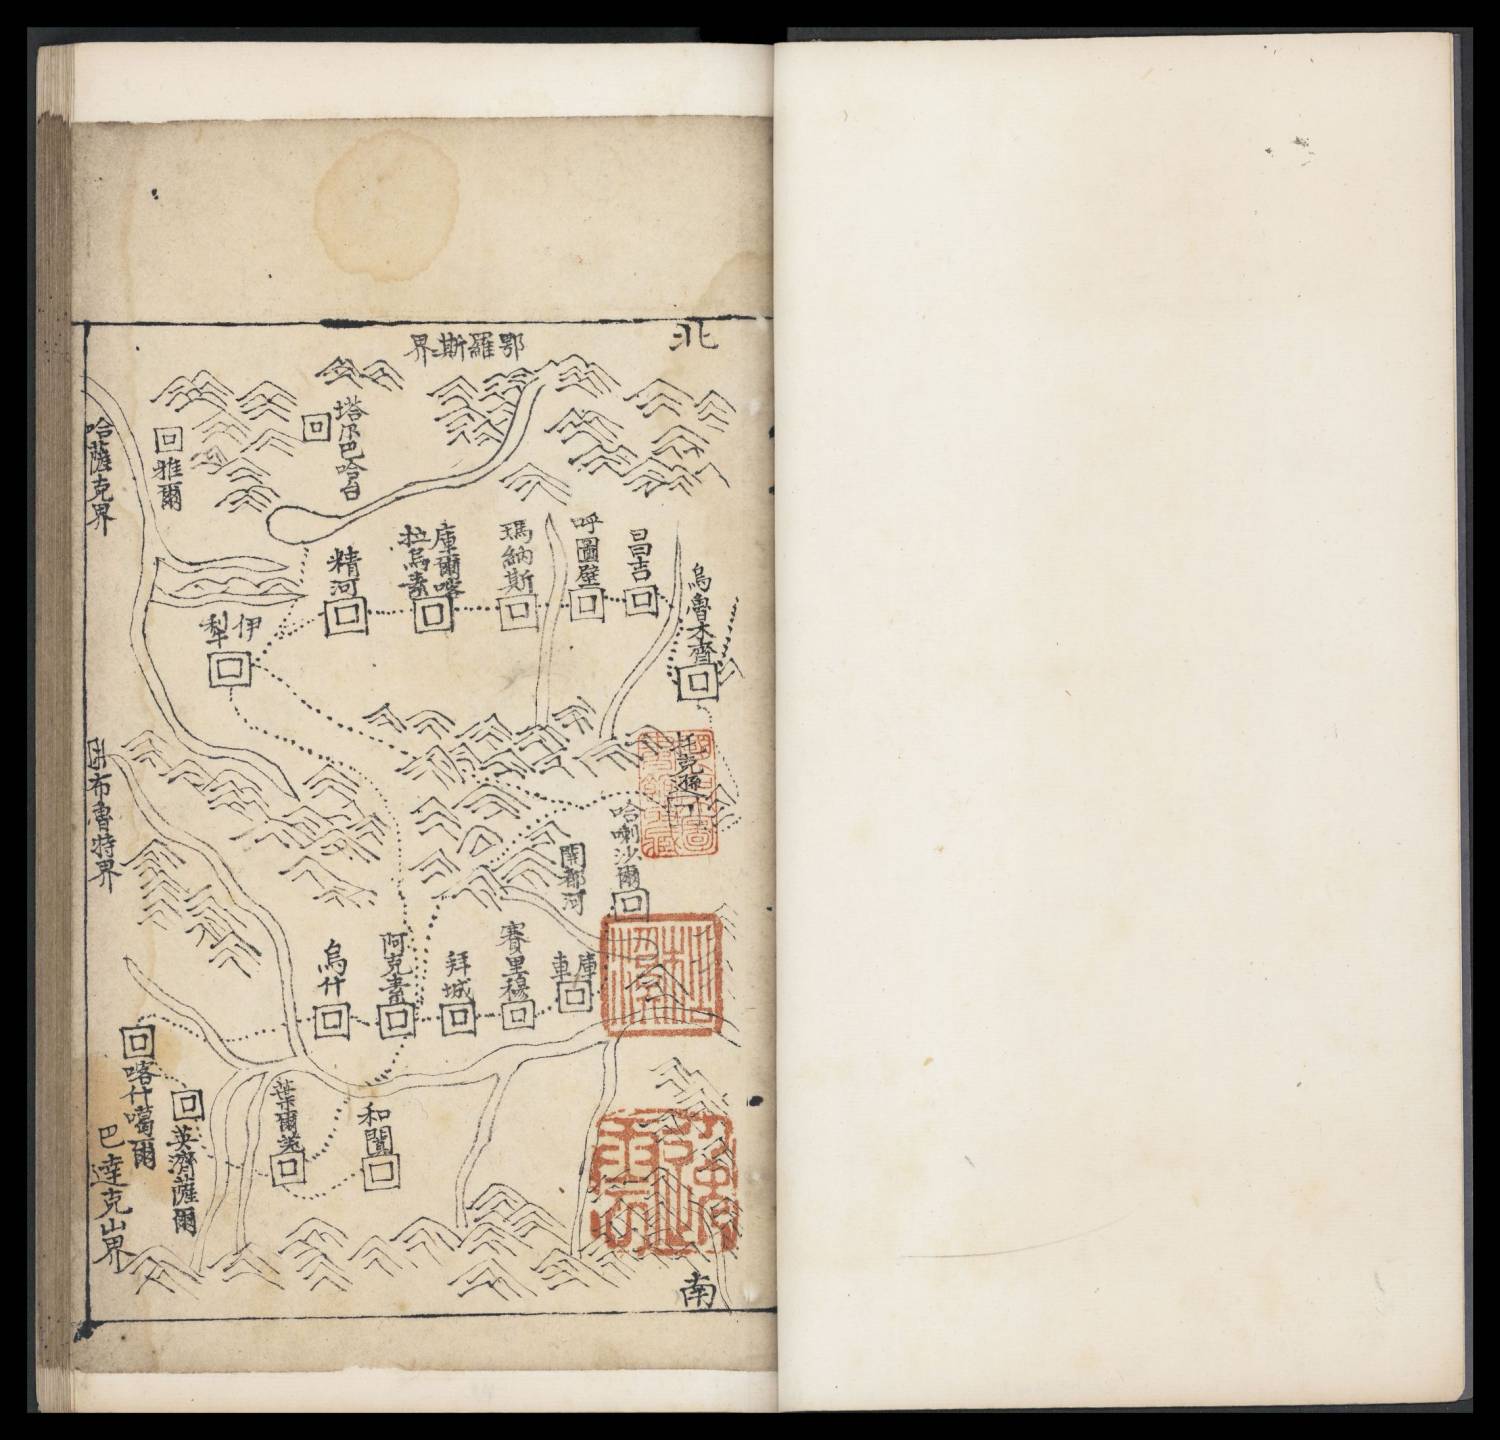 北
鄂羅斯界
塔尔巴哈台
雅爾
哈薩克界
烏魯木齊
昌吉
呼圖壁
瑪納斯
庫爾喀
拉烏素
精河
伊
犁
托克遜
哈喇沙爾
開都河
布魯特界
庫
車
賽里穆
拜城
阿克素
烏什
喀什噶爾
英濟薩爾
葉爾羌
和闐
巴達克山界
南